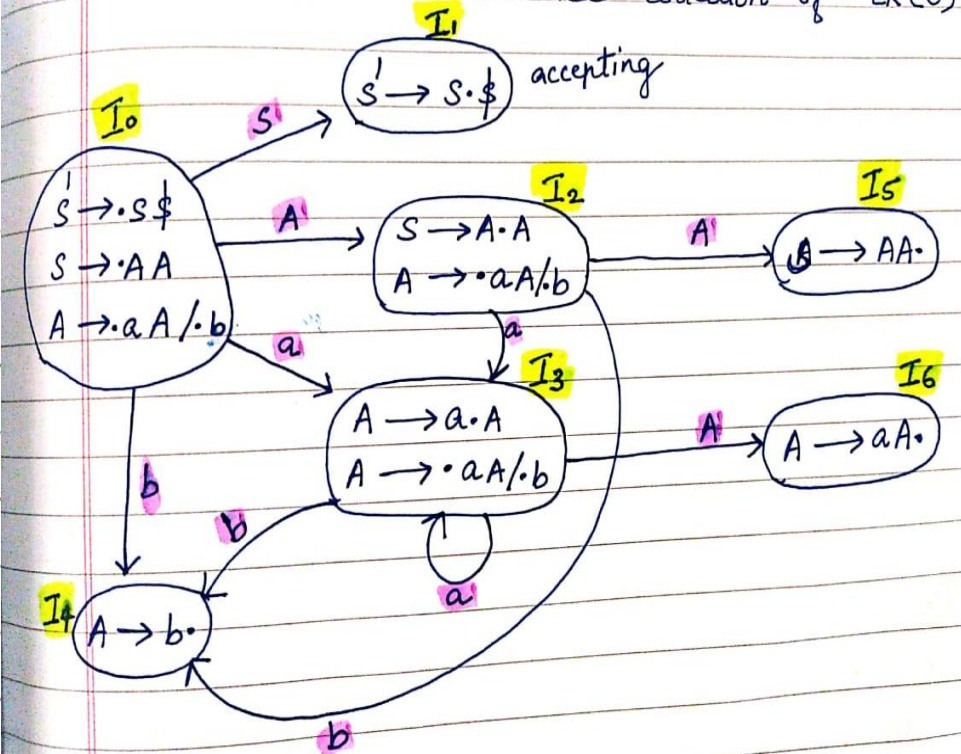 of LR(0)
I1
S' → S·$ accepting
I0
S' → ·S$
S → ·AA
A → ·aA/·b
S
A
a
b
I2
S → A·A
A → ·aA/·b
A
a
b
I5
S → AA·
I3
A → a·A
A → ·aA/·b
A
b
a
I6
A → aA·
I4
A → b·